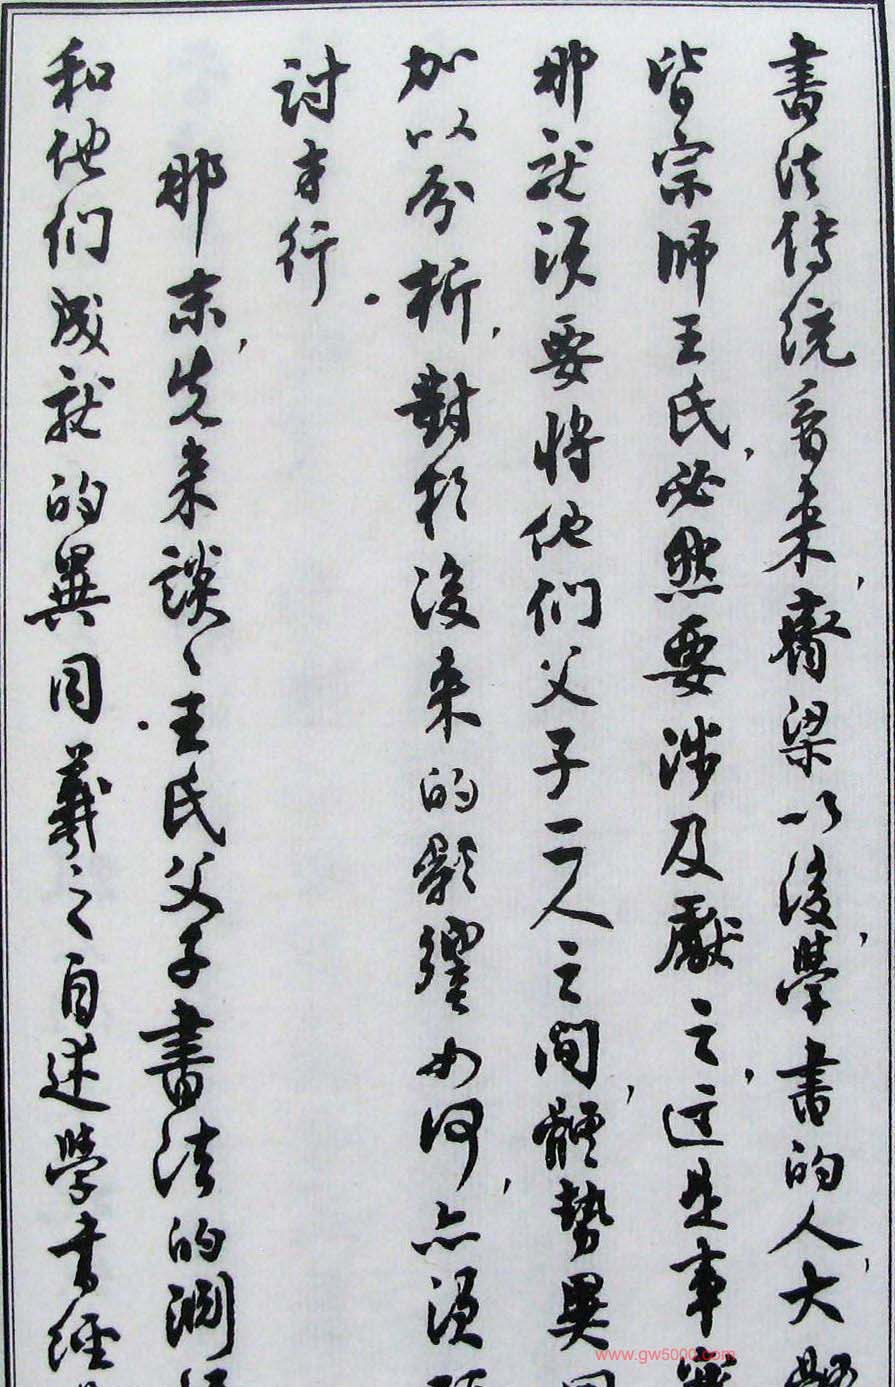 書法传统看来，齊梁以後，学書的人，大
皆宗师王氏，必然要涉及獻之，这是事
那就须要将他们父子二人之间，體势異
加以分析，對於後来的影響如何，亦须
討才行。
那末，先来談談王氏父子書法的渊
和他们成就的異同。羲之自述学書经
www.gw5000.com